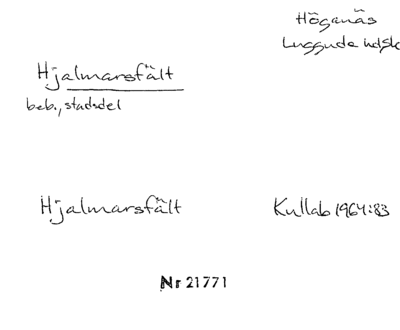 Höganäs
Luggude hdsk
Hjalmarsfält
beb., stadsdel
Hjalmarsfält
Kullab 1964:83
Nr 21771